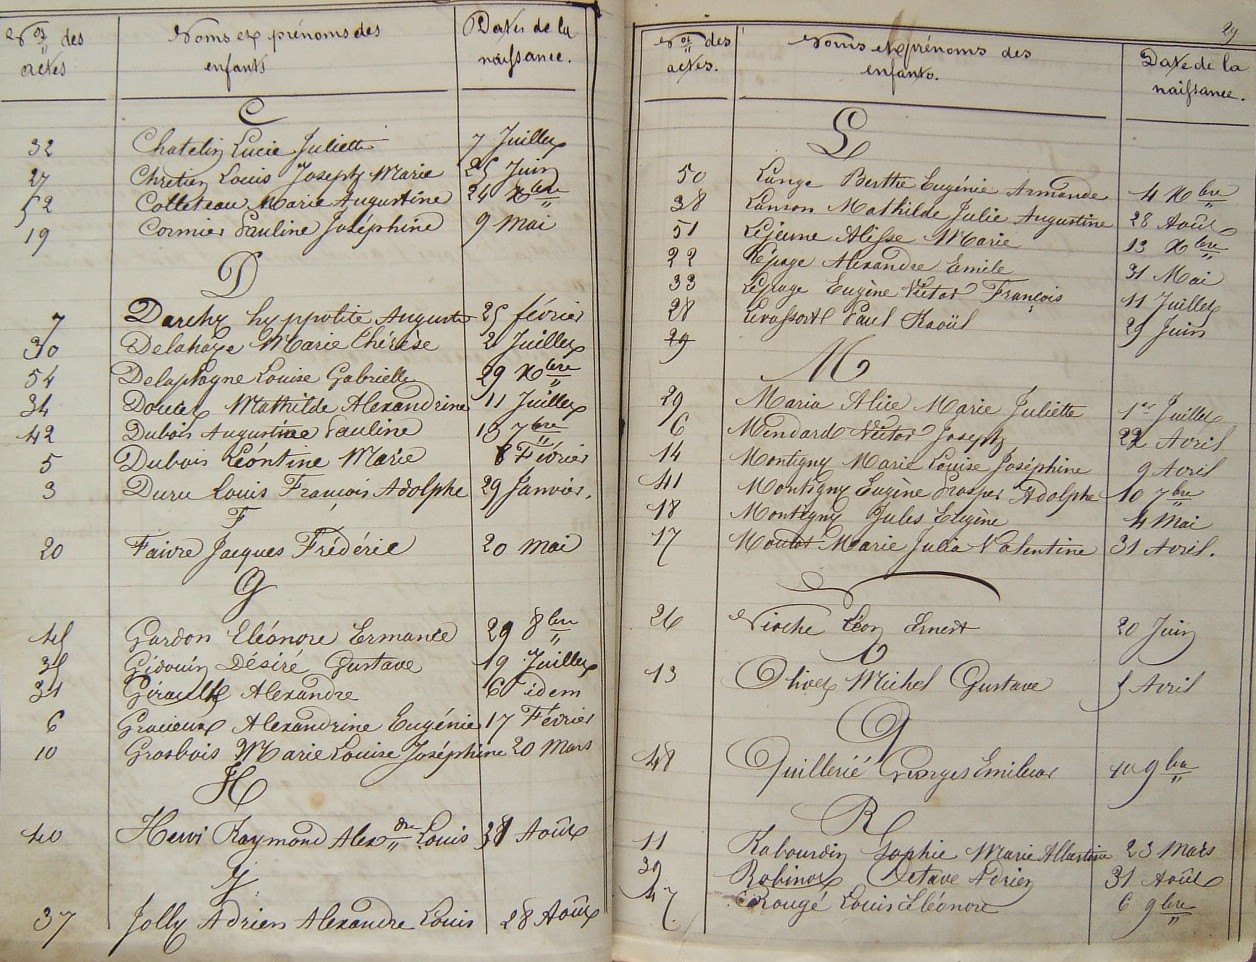 Nos des actes Noms et prénoms des enfants Date de la naissance.
C
32 Chatelin Lucie Juliette 7 Juillet
27 Chretien Louis Joseph Marie 25 Juin
52 Colleteau Marie Augustine 24 Xbre
19 Cormier Pauline Joséphine 9 Mai
D
7 Darchy hyppolite Auguste 25 février
30 Delahaye Marie Thérèse 2 Juillet
54 Delaplagne Louise Gabrielle 29 Xbre
34 Doulet Mathilde Alexandrine 11 Juillet
42 Dubois Augustine Pauline 10 7bre
5 Dubois Léontine Marie 8 Février
3 Duru Louis François Adolphe 29 Janvier.
F
20 Faivre Jacques Frédéric 20 mai
G
Gardon Eléonore Ermance 29 8bre
Gédouin Désiré Gustave 19 Juillet
31 Girault Alexandre 6 idem
6 Gracieux Alexandrine Eugénie 17 Février
10 Grosbois Marie Louise Joséphine 20 Mars
H
40 Hervi Raymond Alexdre Louis 31 Août
J
37 Jolly Adrien Alexandre Louis 28 Août
29
Nos des actes. Noms et prénoms des enfants. Date de la naissance.
L
50 Lange Berthe Eugénie Armande 4 Xbre
38 Lanson Mathilde Julie Augustine 28 Août
51 Lejeune Alisse Marie 13 Xbre
22 Lepage Alexandre Emile 31 Mai
33 Lepage Eugène Victor François 11 Juillet
28 Levassort Paul Raoül 29 Juin
29
M
29 Maria Alice Marie Juliette 1er Juillet
16 Mendard Victor Joseph 22 Avril
14 Montigny Marie Louise Joséphine 9 Avril
41 Montigny Eugène Prosper Adolphe 10 7bre
18 Montigny Jules Eugène 4 Mai
17 Moutot Marie Julia Valentine 31 Avril.
26 Nioche Léon Ernest 20 Juin
O
13 Olivet Michel Gustave 5 Avril
Q
48 Quillerié Georges Emilien 9bre
R
11 Rabourdin Sophie Marie Albertine 23 Mars
39 Robinot Octave Adrien 31 Août
47 Rougé Louis Eléonore 6 9bre